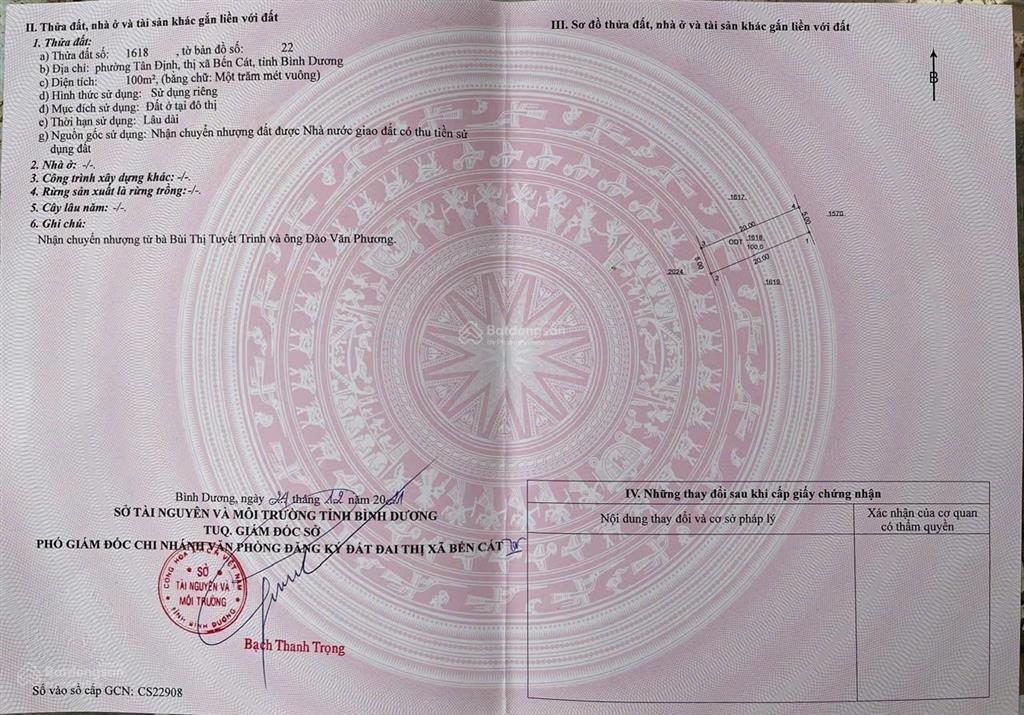 II. Thửa đất, nhà ở và tài sản khác gắn liền với đất
1. Thửa đất:
a) Thửa đất số: 1618 , tờ bản đồ số: 22
b) Địa chỉ: phường Tân Định, thị xã Bến Cát, tỉnh Bình Dương
c) Diện tích: 100m², (bằng chữ: Một trăm mét vuông)
d) Hình thức sử dụng: Sử dụng riêng
đ) Mục đích sử dụng: Đất ở tại đô thị
e) Thời hạn sử dụng: Lâu dài
g) Nguồn gốc sử dụng: Nhận chuyển nhượng đất được Nhà nước giao đất có thu tiền sử
dụng đất
2. Nhà ở: -/-.
3. Công trình xây dựng khác: -/-.
4. Rừng sản xuất là rừng trồng: -/-.
5. Cây lâu năm: -/-.
6. Ghi chú:
Nhận chuyển nhượng từ bà Bùi Thị Tuyết Trinh và ông Đào Văn Phương.
Bình Dương, ngày 24 tháng 12 năm 2021
SỞ TÀI NGUYÊN VÀ MÔI TRƯỜNG TỈNH BÌNH DƯƠNG
TUQ. GIÁM ĐỐC SỞ
PHÓ GIÁM ĐỐC CHI NHÁNH VĂN PHÒNG ĐĂNG KÝ ĐẤT ĐAI THỊ XÃ BẾN CÁT
CỘNG HÒA VIỆT NAM
SỞ
TÀI NGUYÊN VÀ
MÔI TRƯỜNG
TỈNH BÌNH DƯƠNG
Bạch Thanh Trọng
Số vào sổ cấp GCN: CS22908
III. Sơ đồ thửa đất, nhà ở và tài sản khác gắn liền với đất
B
1617
4
5.00
1570
20.00
3
ODT
1618
100.0
1
5.00
20.00
2024
2
1619
Batdongsan
by PropertyGuru
IV. Những thay đổi sau khi cấp giấy chứng nhận
Nội dung thay đổi và cơ sở pháp lý
Xác nhận của cơ quan
có thẩm quyền
Batdongsan